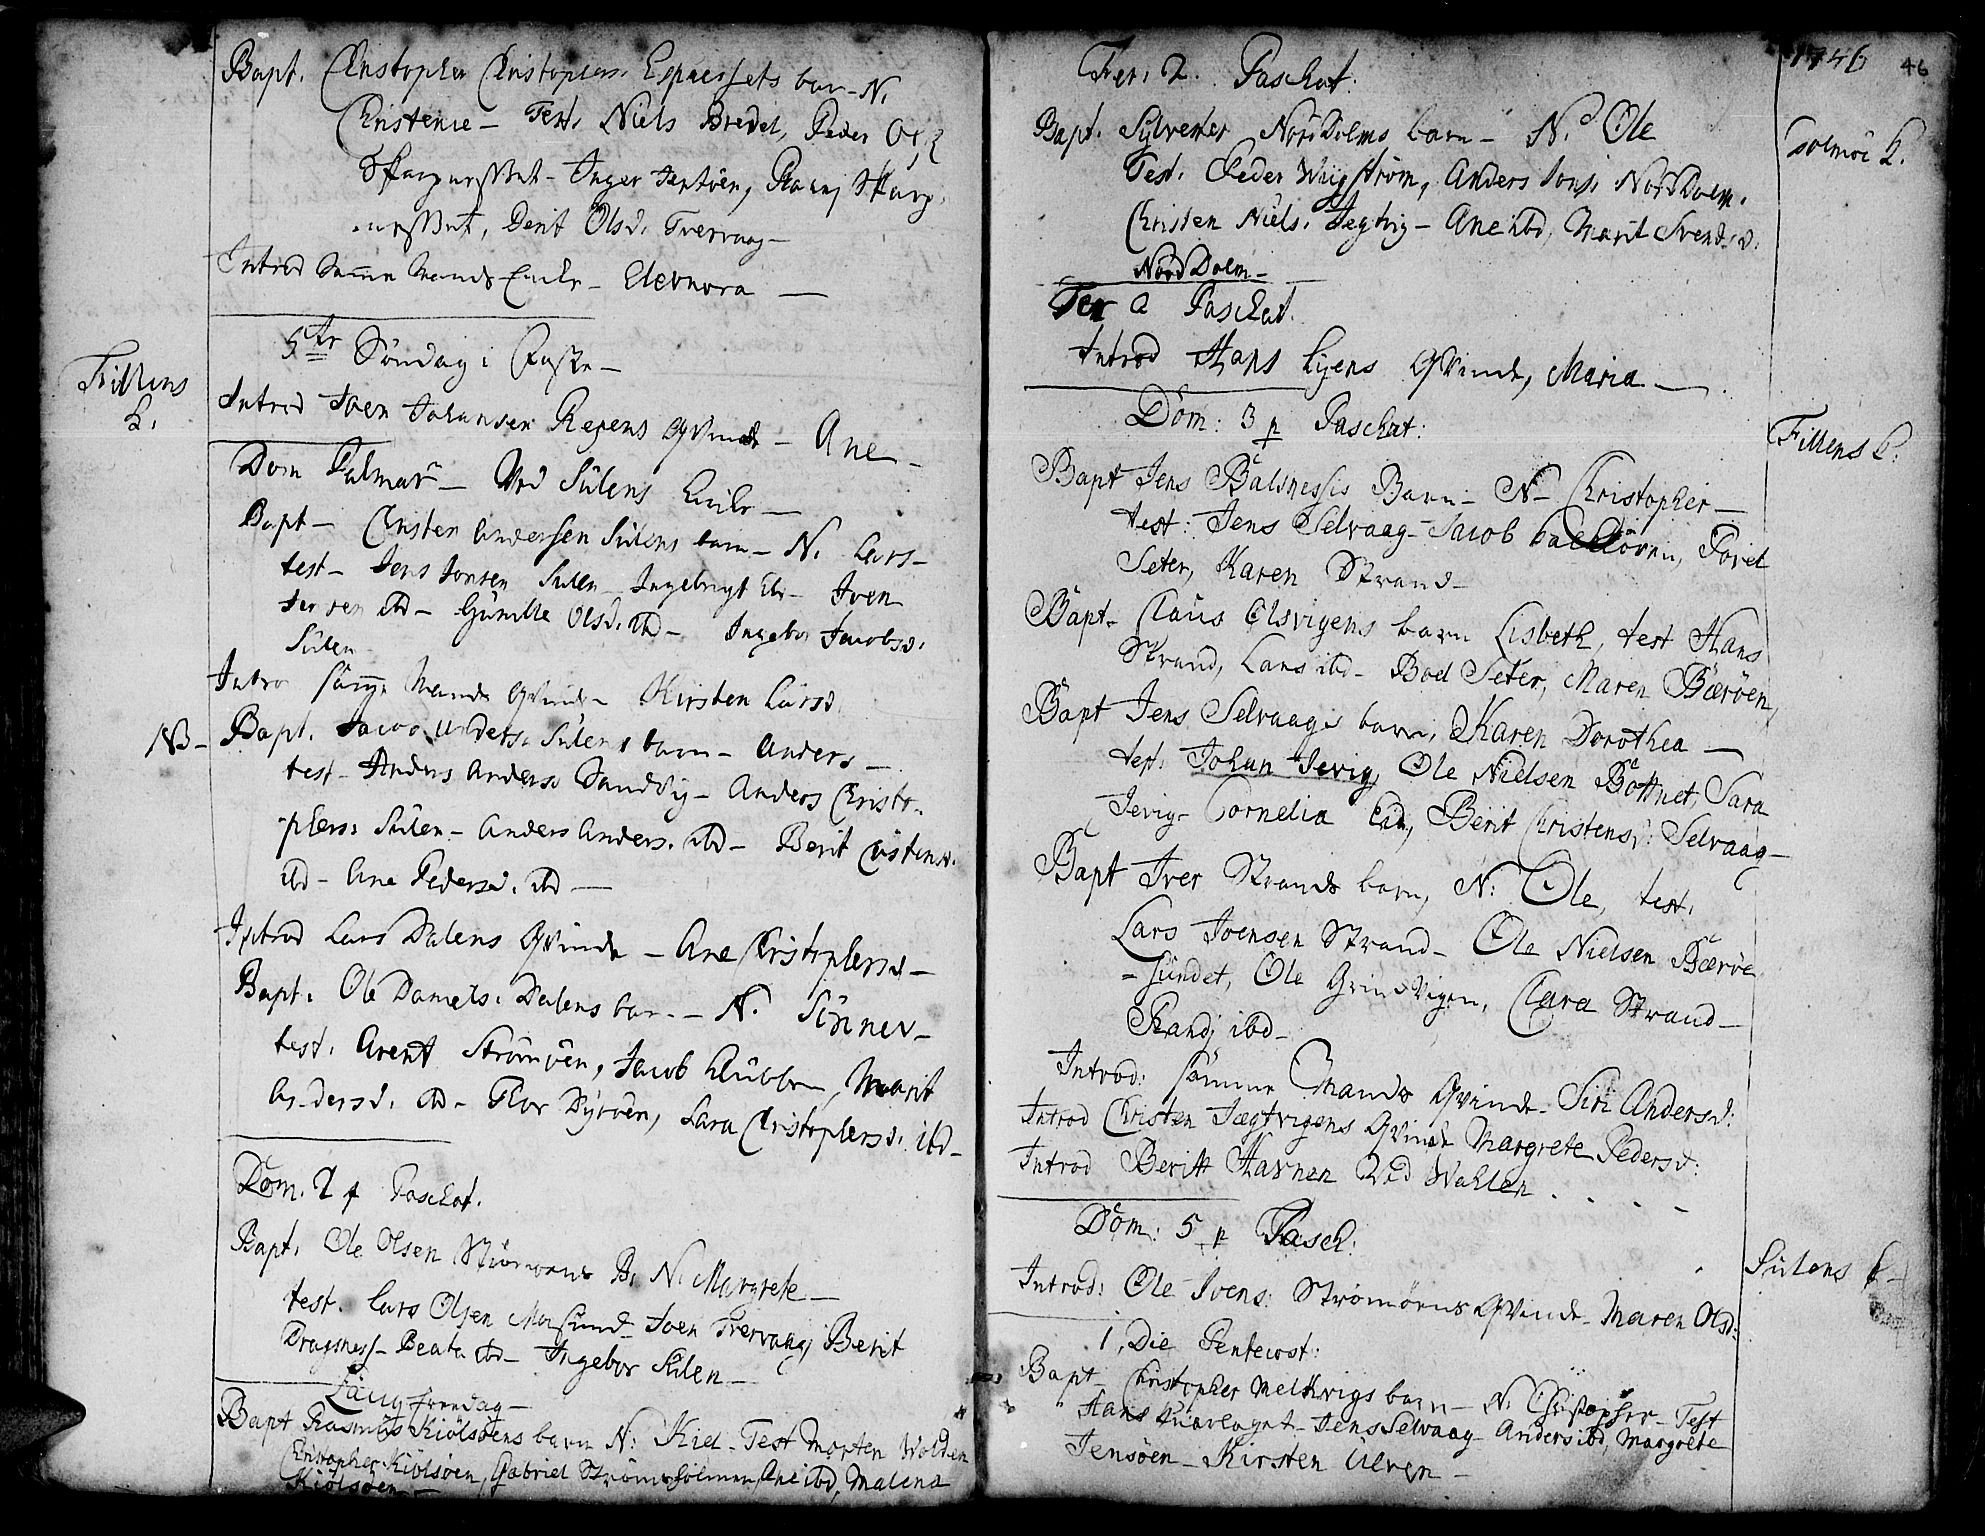 Bapt. Christopher Christophers. barn - N.
Christenie - Test. Niels Bredel, Peder
Inger Jentöen, Randj
Berit Olsd. Tvervaag -
Introd Samme Mands Eleonora -
5te Söndag i Faste -
Fillens
K.
Introd Joen Johansen Qvinde - Ane -
Dom Palmar - Ved Sulens Kirke -
Bapt - Christen Andersen Sulens barn - N. Lars -
test - Jens Jonsen Sulen - Ingebrigt Joen
ibd - Gunille Olsd. ibd - Ingebor Jacobsd.
Sulen
Intro samme Mands Qvinde - Kirsten Larsd.
NB - Bapt. Jacob Anders. Sulens barn - Anders -
test - Anders Anders. Sandvig - Anders Christo-
phers: Sulen - Anders Anders. ibd - Berit
ibd - Ane Pedersd. ibd -
Introd Lars Dalens Qvinde - Ane Christophersd -
Bapt. Ole Daniels. Dalens barn - N. Sönnev -
test. Arent Strömöen, Jacob Klubben, Marit
Andersd. ibd - Thor Dyröen, Sara Christophersd. ibd -
Dom. 2 p Paschat.
Bapt. Ole Olsen B. N. Margrete -
test. Lars Olsen Mausund - Joen Tvervaag, Berit
Dragsnes - Beata ibd - Ingebor Sulen -
Langfredag -
Bapt Rasmus Kiölsöens barn N: Kiel - Test Morten Wolden
Christopher Kiölsöen, Gabriel Strömsholmen, Ane ibd, Malena
Kiölsöen -
1746 46
Fer: 2. Paschat:
Bapt. Sylvester NordDolms barn - N. Ole
Dolmöe K.
Test. Peder Wiigström, Anders Jons. NordDolm.
Christen Niels. Jegtvig - Ane ibd, Marit Svendsd.
NordDolm -
Fer a Paschat.
Introd Hans Liens Qvinde, Maria -
Dom: 3 p Paschat:
Fillens K.
Bapt Jens Balsnessis Barn - N - Christopher -
test: Jens Selvaag - Jacob Poret
Seter, Karen Strand -
Bapt. Claus Olsvigens barn Lisbeth, test Hans
Strand, Lars ibd - Boel Seter, Maren Bæröen,
Bapt Jens Selvaags barn, Karen Dorothea -
test. Johan Jevig, Ole Nielsen Bottnet, Sara
Jevig - Cornelia Eid, Berit Christensd: Selvaag -
Bapt Iver Strands barn, N: Ole, test.
Lars Joensen Strand - Ole Nielsen Bæröe
- sundet, Ole Grindvigen, Clara Strand -
Randj ibd -
Introd: samme Mands Qvinde - Siri Andersd:
Introd Christen Jægtvigens Qvinde Margrete Pedersd:
Introd Beritt Havnen Ved Wahlen . . . -
Dom: 5 p Pasch:
Sulens K -
Introd: Ole Ivens: Strömöens Qvinde - Maren Olsd:
1, Die Pentecost:
Bapt - Christopher Melkvigs barn - N. Christopher - Test
Hans - Jens Selvaag - Anders ibd, Margrete
Jensöen - Kirsten Ulven -